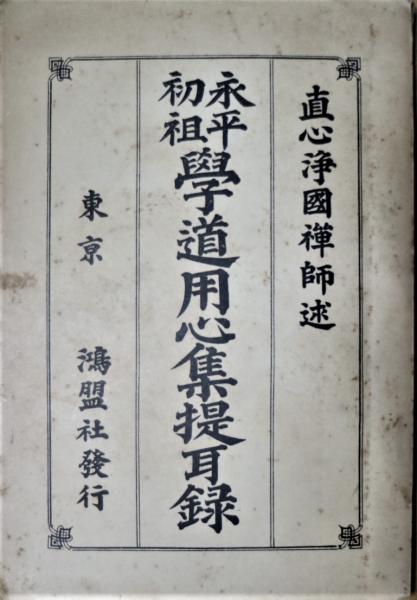 直心淨國禪師述
永平
初祖
學道用心集提耳録
東京 鴻盟社發行